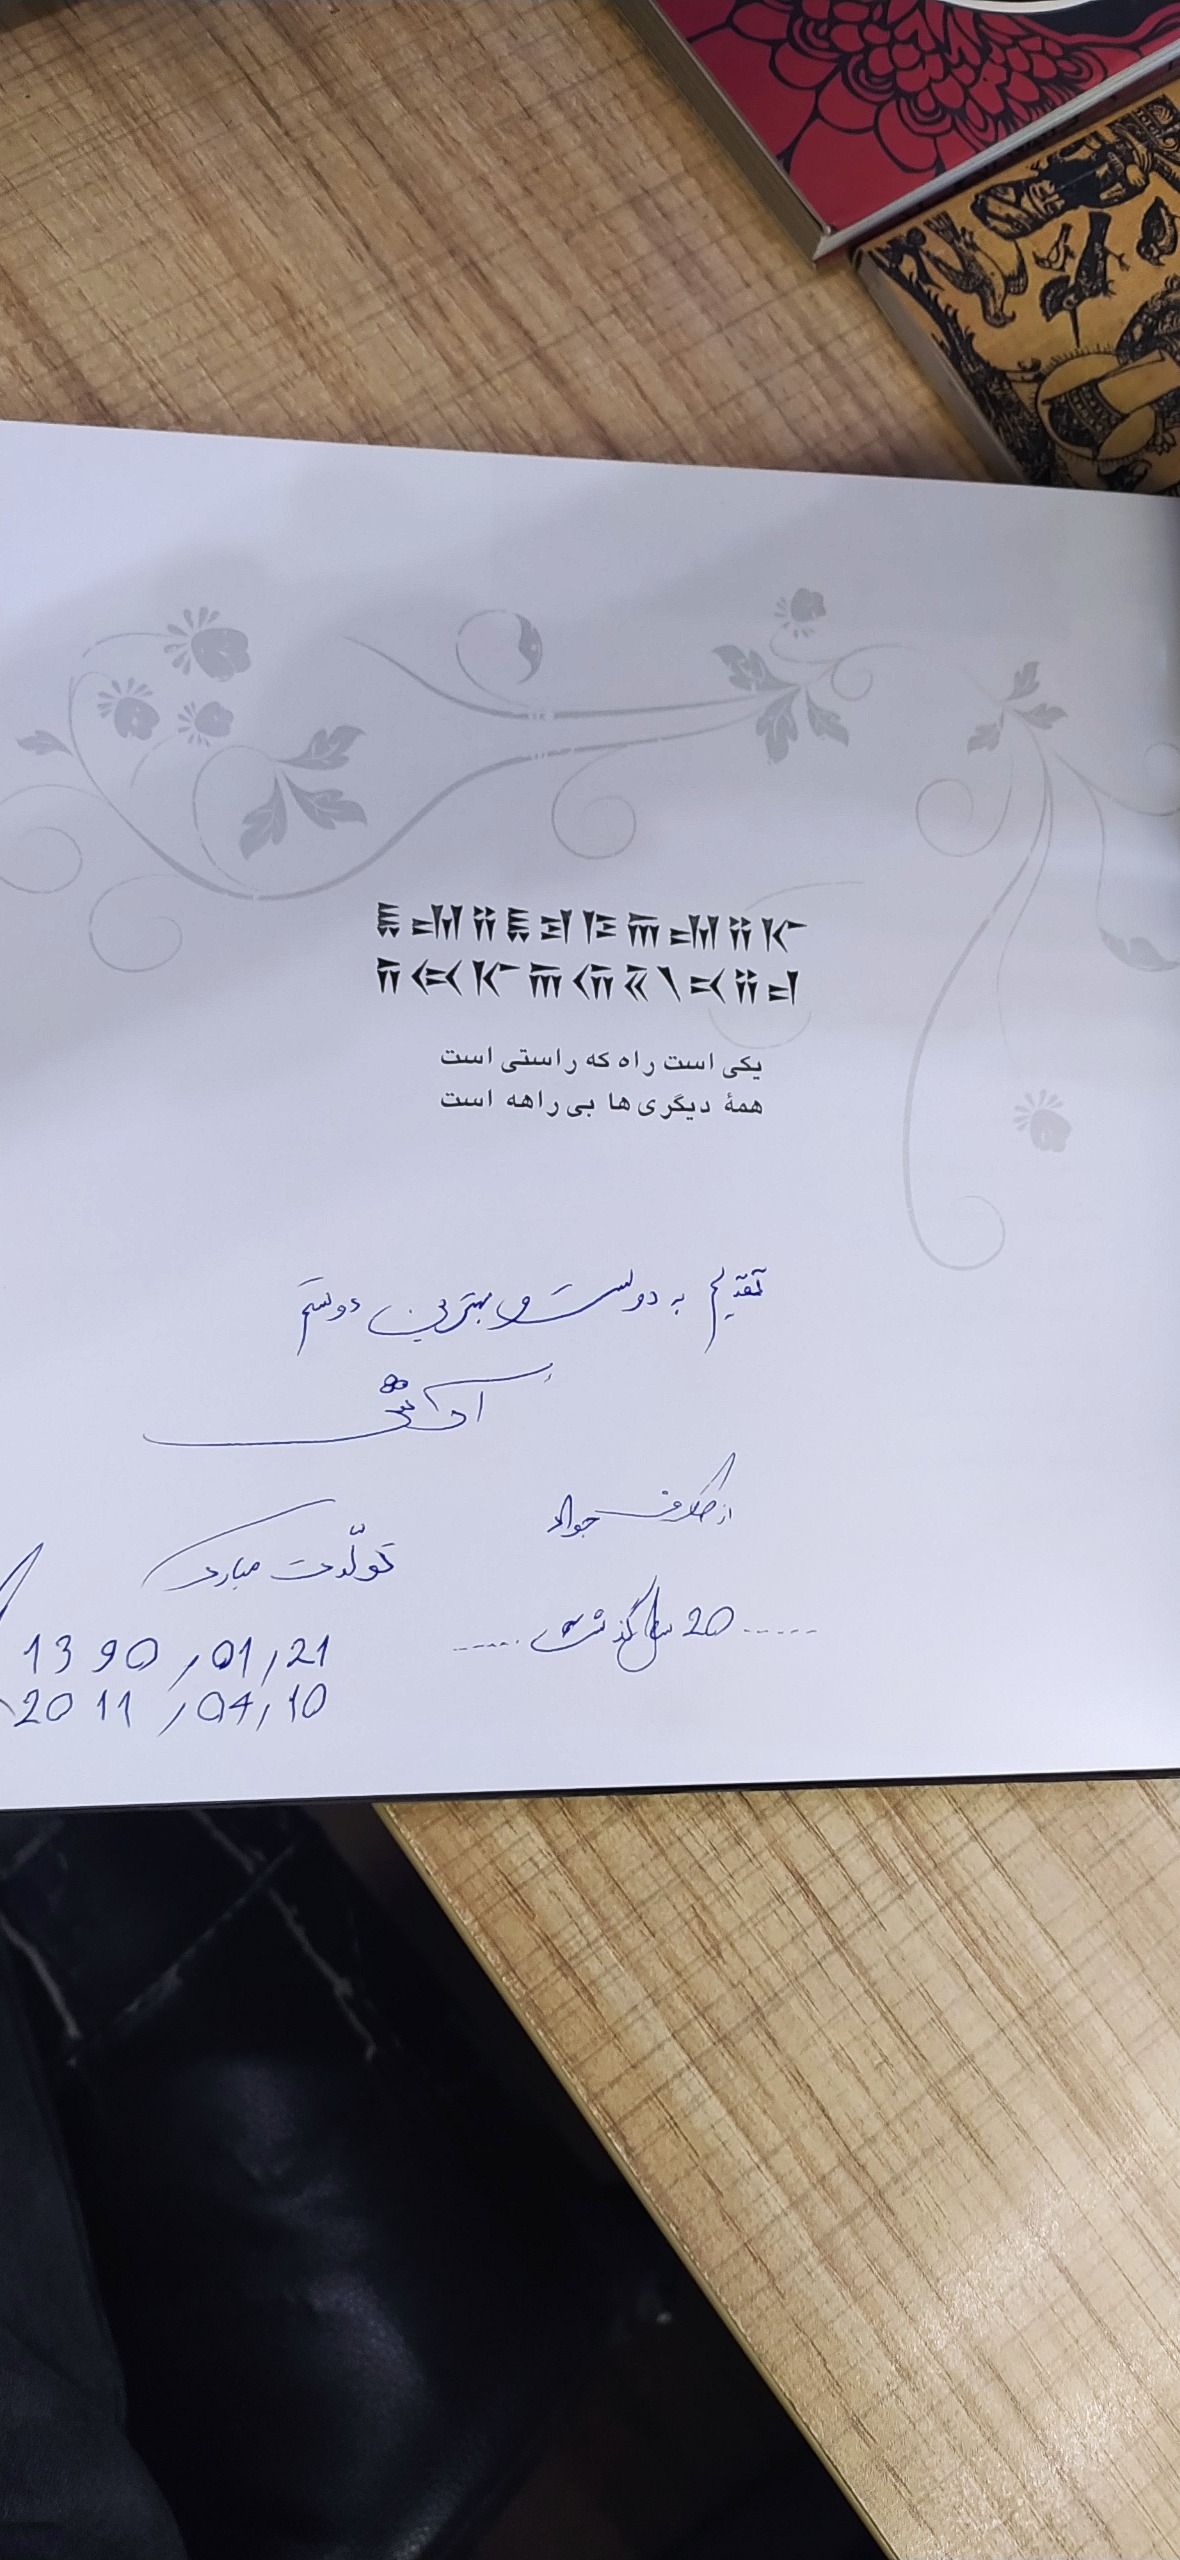 یکی است راه که راستی است
همهٔ دیگری ها بی راهه است
تقدیم به دوست و بهترین دوستم
از طرف جواد
تولّدت مبارک
..... 20 سال گذشت .....
1390/01/21
2011/04/10